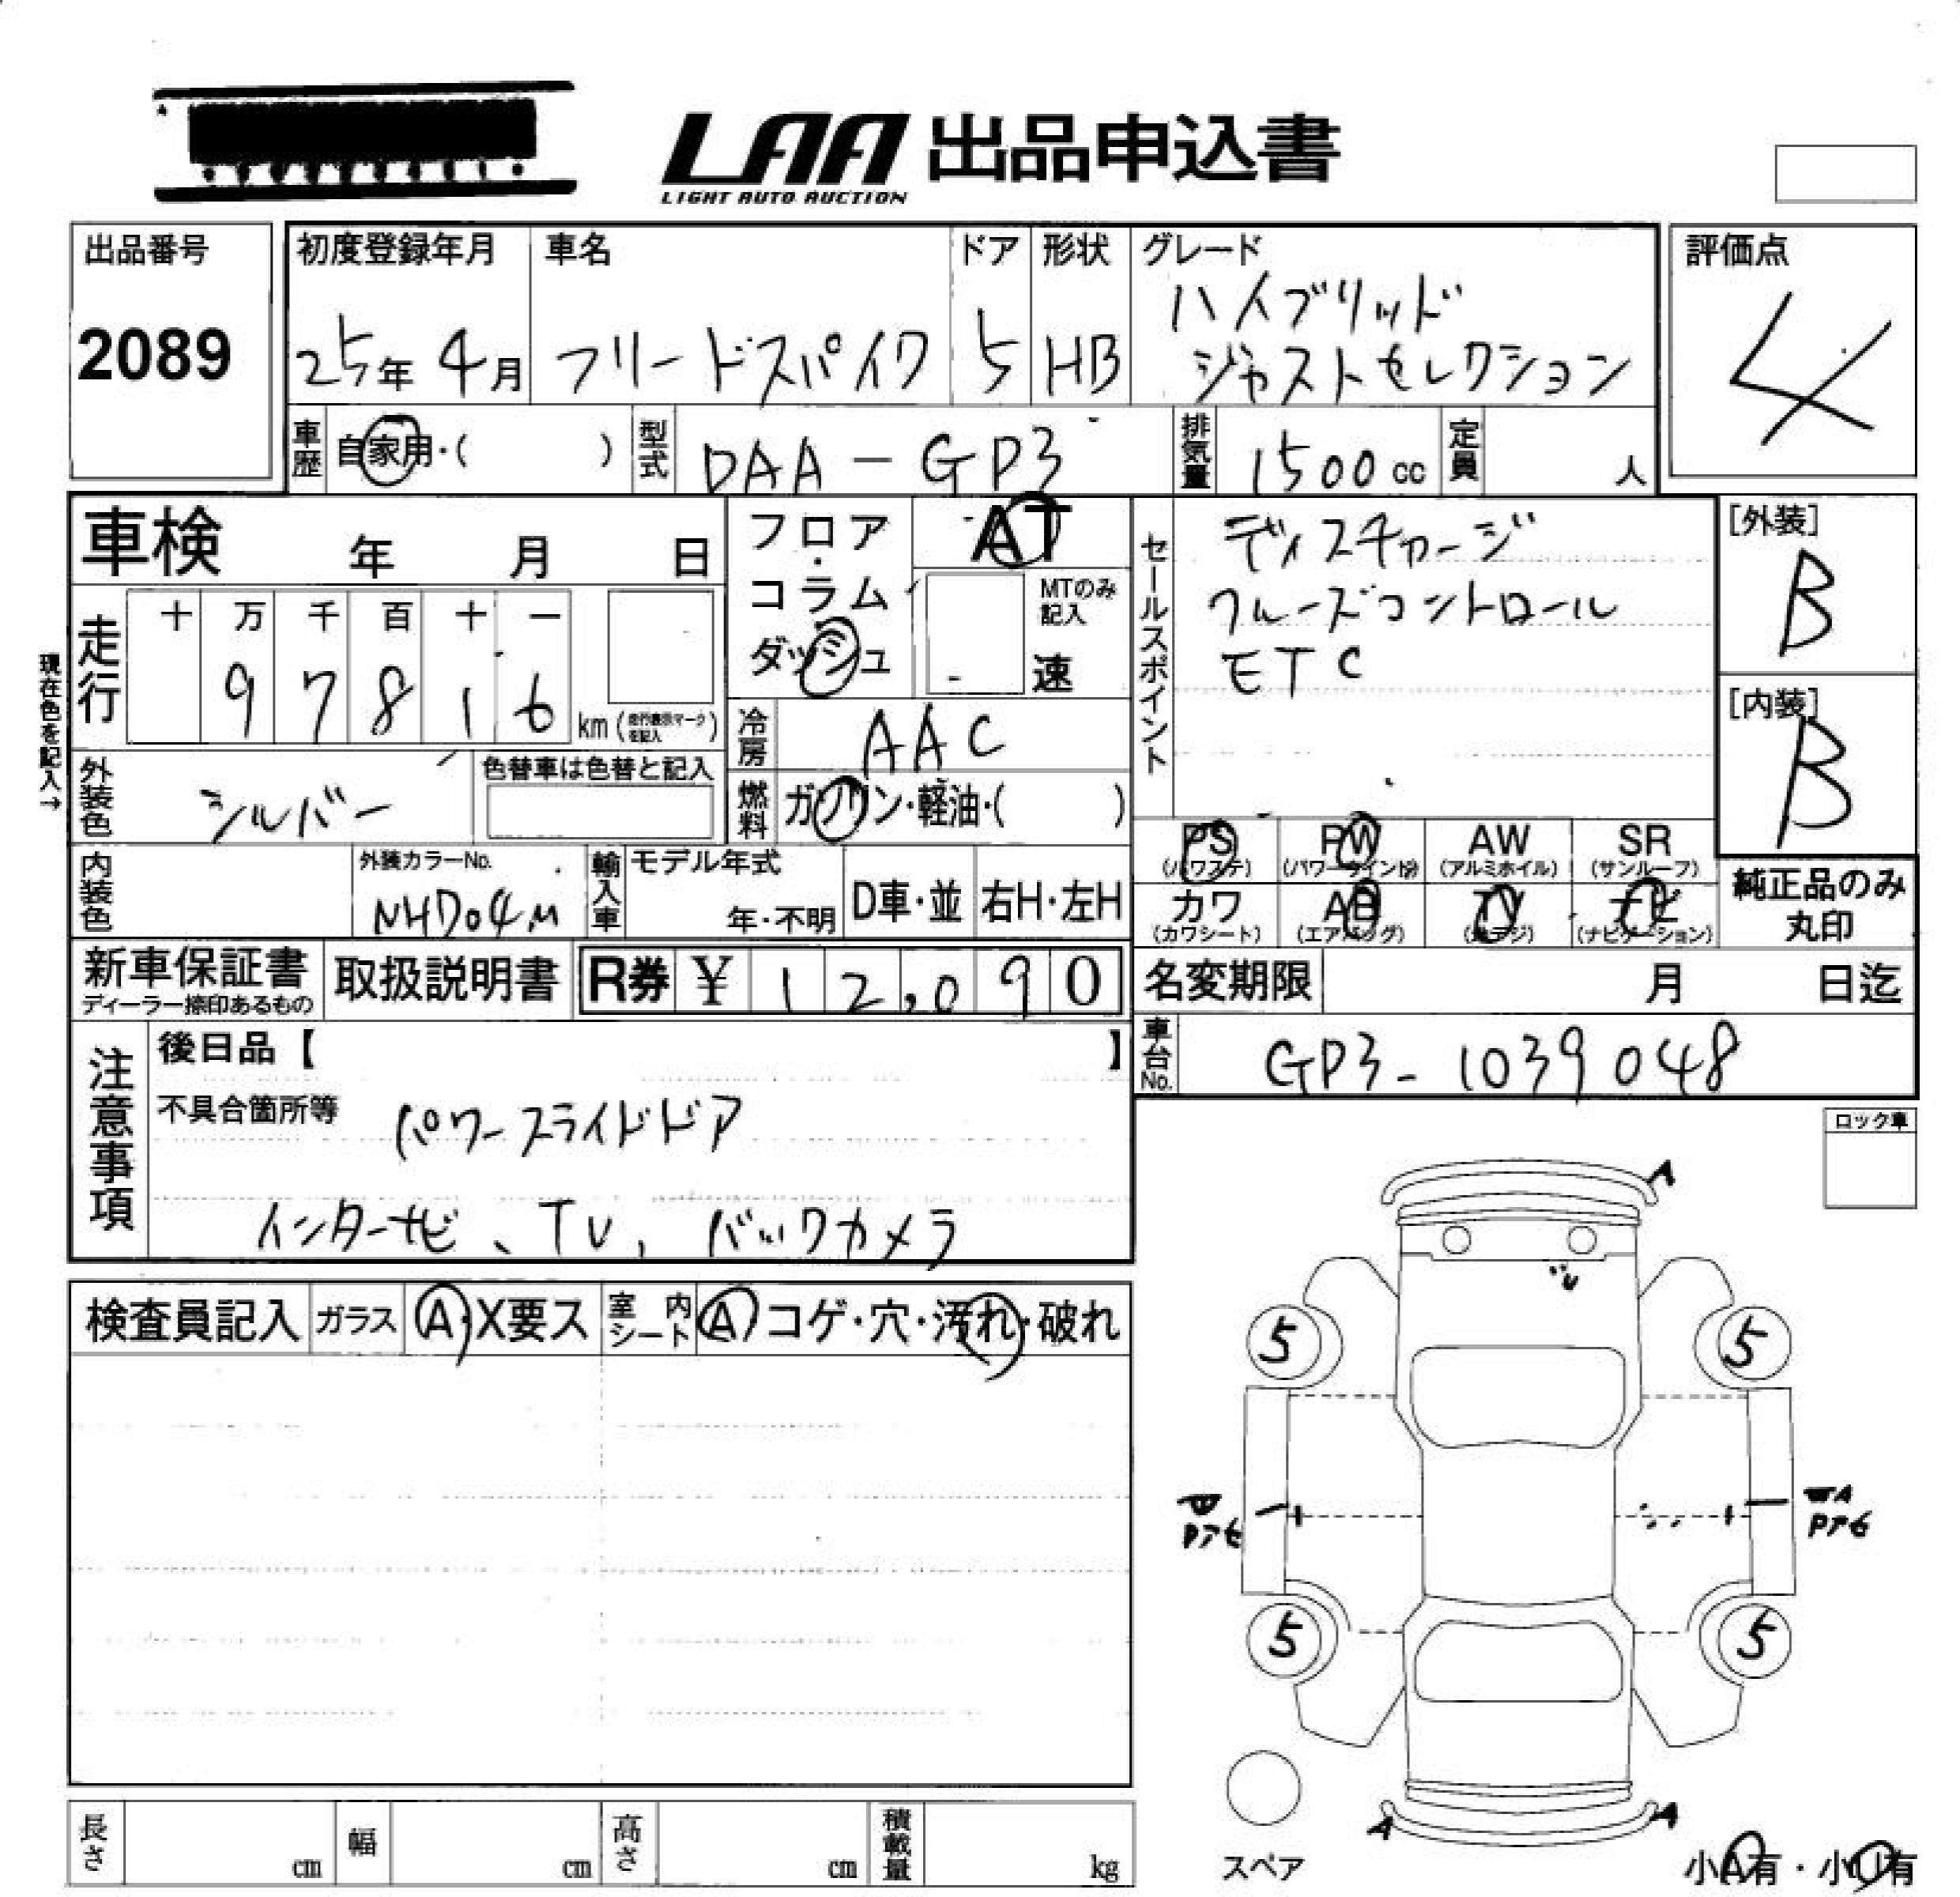 LAA 出品申込書
LIGHT AUTO AUCTION
出品番号
2089
初度登録年月
25年 4月
車名
フリードスパイク
ドア
5
形状
HB
グレード
ハイブリッド
ジャストセレクション
評価点
4
車歴
自家用・( )
型式
DAA-GP3
排気量
1500cc
定員
人
車検 年 月 日
フロア・
コラム・
ダッシュ
AT
MTのみ
記入
速
セールスポイント
ディスチャージ
クルーズコントロール
ETC
[外装]
B
[内装]
B
現在色を記入→
走行
十 万 千 百 十 一
9 7 8 1 6 km
冷房
AAC
外装色
シルバー
色替車は色替と記入
燃料
ガソリン・軽油・( )
PS
(パワステ)
PW
(パワーウインド)
AW
(アルミホイル)
SR
(サンルーフ)
カワ
(カワシート)
AB
(エアバッグ)
TV
(地デジ)
ナビ
(ナビゲーション)
純正品のみ
丸印
内装色
外装カラーNo.
NHD04M
輸入車
モデル年式
年・不明
D車・並
右H・左H
新車保証書
ディーラー捺印あるもの
取扱説明書
R券 ¥ 12,090
名変期限 月 日迄
車台No.
GP3-1039048
注意事項
後日品【 】
不具合箇所等
パワースライドドア
インターナビ、TV、バックカメラ
ロック車
検査員記入
ガラス
A・X要ス
室内
シート
A コゲ・穴・汚れ・破れ
A
5
5
PアC
WA
Pア6
5
5
A
A
スペア
小A有・小U有
長さ
cm
幅
cm
高さ
cm
積載量
kg